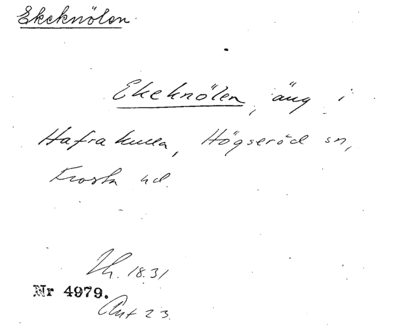 Ekeknölen.
Ekeknölen, äng i
Hafrakulla, Högseröd sn,
Frosta hd.
18.31
Nr 4979.
Ant 23.